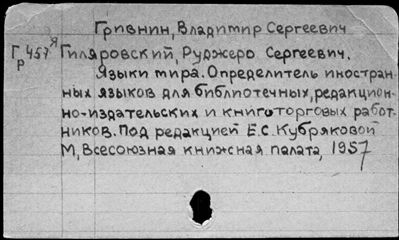 Гривнин, Владимир Сергеевич
Гр457я Гиляровский, Руджеро Сергеевич.
Языки мира. Определитель иностран-
ных языков для библиотечных, редакцион-
но-издательских и книготорговых работ-
ников. Под редакцией Е.С. Кубряковой
М, Всесоюзная книжная палата, 1957